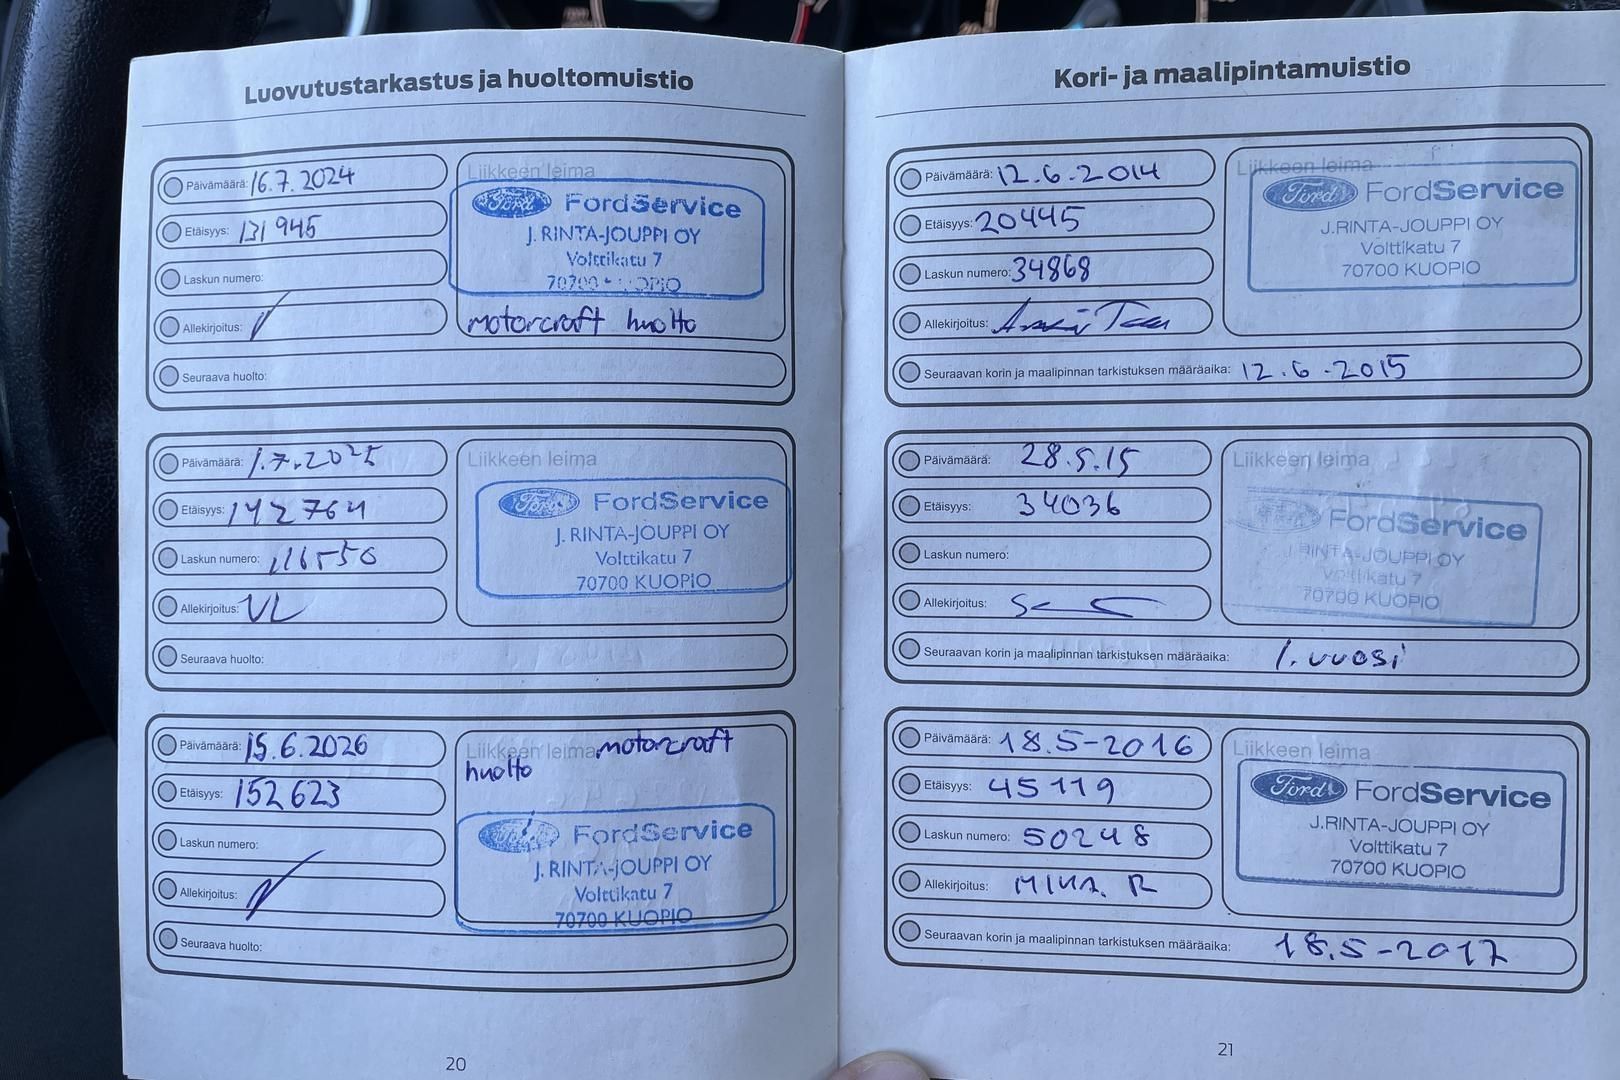 Luovutustarkastus ja huoltomuistio
Päivämäärä: 16.7.2024
Etäisyys: 131 945
Laskun numero:
Allekirjoitus:
Seuraava huolto:
Liikkeen leima
Ford FordService
J. RINTA-JOUPPI OY
Volttikatu 7
70700 KUOPIO
motorcraft huolto
Päivämäärä: 1.7.2025
Etäisyys: 142764
Laskun numero: 116550
Allekirjoitus: VL
Seuraava huolto:
Liikkeen leima
Ford FordService
J. RINTA-JOUPPI OY
Volttikatu 7
70700 KUOPIO
Päivämäärä: 15.6.2026
Etäisyys: 152623
Laskun numero:
Allekirjoitus:
Seuraava huolto:
Liikkeen leima motorcraft
huolto
FordService
J. RINTA-JOUPPI OY
Volttikatu 7
70700 KUOPIO
20
Kori- ja maalipintamuistio
Päivämäärä: 12.6.2014
Etäisyys: 20445
Laskun numero: 34868
Allekirjoitus:
Seuraavan korin ja maalipinnan tarkistuksen määräaika: 12.6.2015
Liikkeen leima
Ford FordService
J.RINTA-JOUPPI OY
Volttikatu 7
70700 KUOPIO
Päivämäärä: 28.5.15
Etäisyys: 34036
Laskun numero:
Allekirjoitus:
Seuraavan korin ja maalipinnan tarkistuksen määräaika: 1. vuosi
Liikkeen leima
Ford FordService
J.RINTA-JOUPPI OY
Volttikatu 7
70700 KUOPIO
Päivämäärä: 18.5-2016
Etäisyys: 45119
Laskun numero: 50248
Allekirjoitus: MIKA. R
Seuraavan korin ja maalipinnan tarkistuksen määräaika: 18.5-2017
Liikkeen leima
Ford FordService
J.RINTA-JOUPPI OY
Volttikatu 7
70700 KUOPIO
21